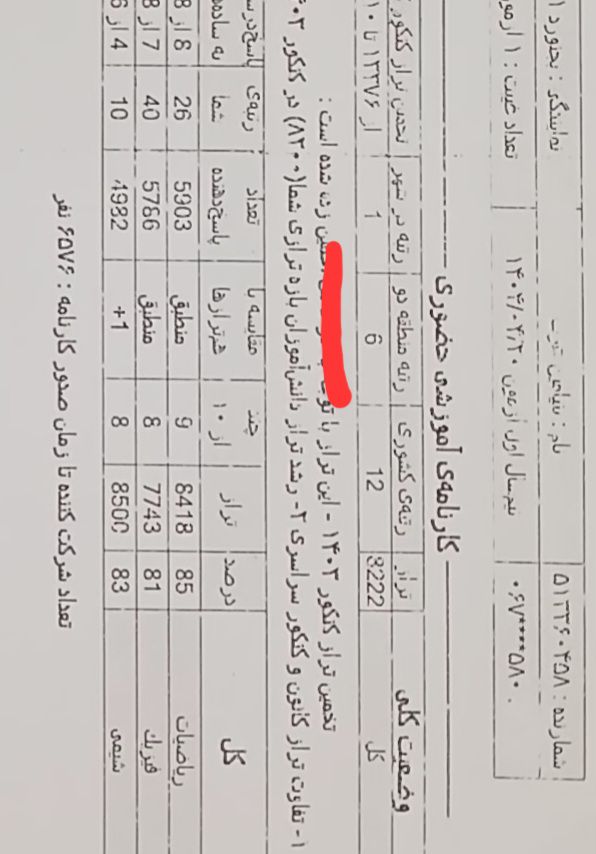 شمارنده : ۵۱۳۳۶۰۴۵۸ نام : نمایندگی : بجنورد
۰۶۷****۵۸۰ نیم‌سال اول آزمون ۱۴۰۴/۰۴/۲۰ تعداد غیبت : ۱ آزمون
کارنامه‌ی آموزشی حضوری
وضعیت کلی تراز رتبه‌ی کشوری رتبه منطقه دو رتبه در شهر تخمین تراز کنکور
کل 8222 12 6 1 از ۱۳۳۷۶ تا
تخمین تراز کنکور ۱۴۰۳ - این تراز با زده شده است :
۱- تفاوت تراز کانون و کنکور سراسری ۲- رشد تراز دانش‌آموزان بازه ترازی شما(۸۲۰۰) در کنکور
کل درصد تراز چند از ۱۰ مقایسه با هم‌ترازها تعداد پاسخ‌دهنده رتبه‌ی شما
ریاضیات 85 8418 9 منطبق 5903 26 8 از
فیزیک 81 7743 8 منطبق 5786 40 7 از 8
شیمی 83 8500 8 +1 4982 10 4 از 6
تعداد شرکت کننده تا زمان صدور کارنامه : ۶۵۷۶ نفر